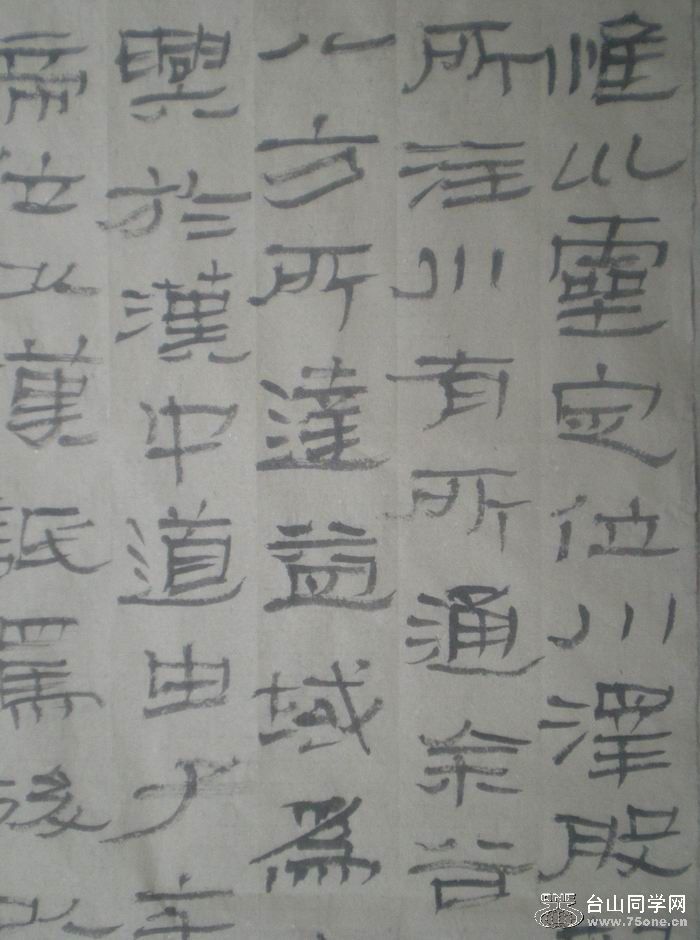 惟巛靈定位川澤股
所注川有所通余谷
八方所達益域為
興於漢中道由子午
帝位以漢詆焉後以
台山同学网
www.75one.cn